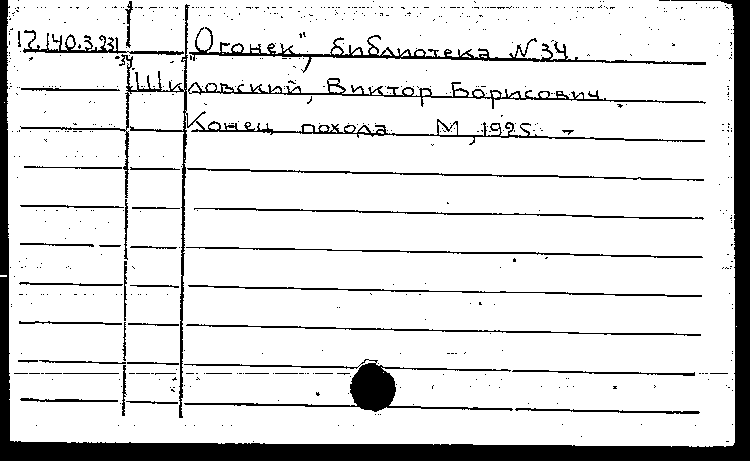 17.140.3.231 "Огонек", библиотека N 34.
34
Шкловский, Виктор Борисович
Конец похода М, 1925. -